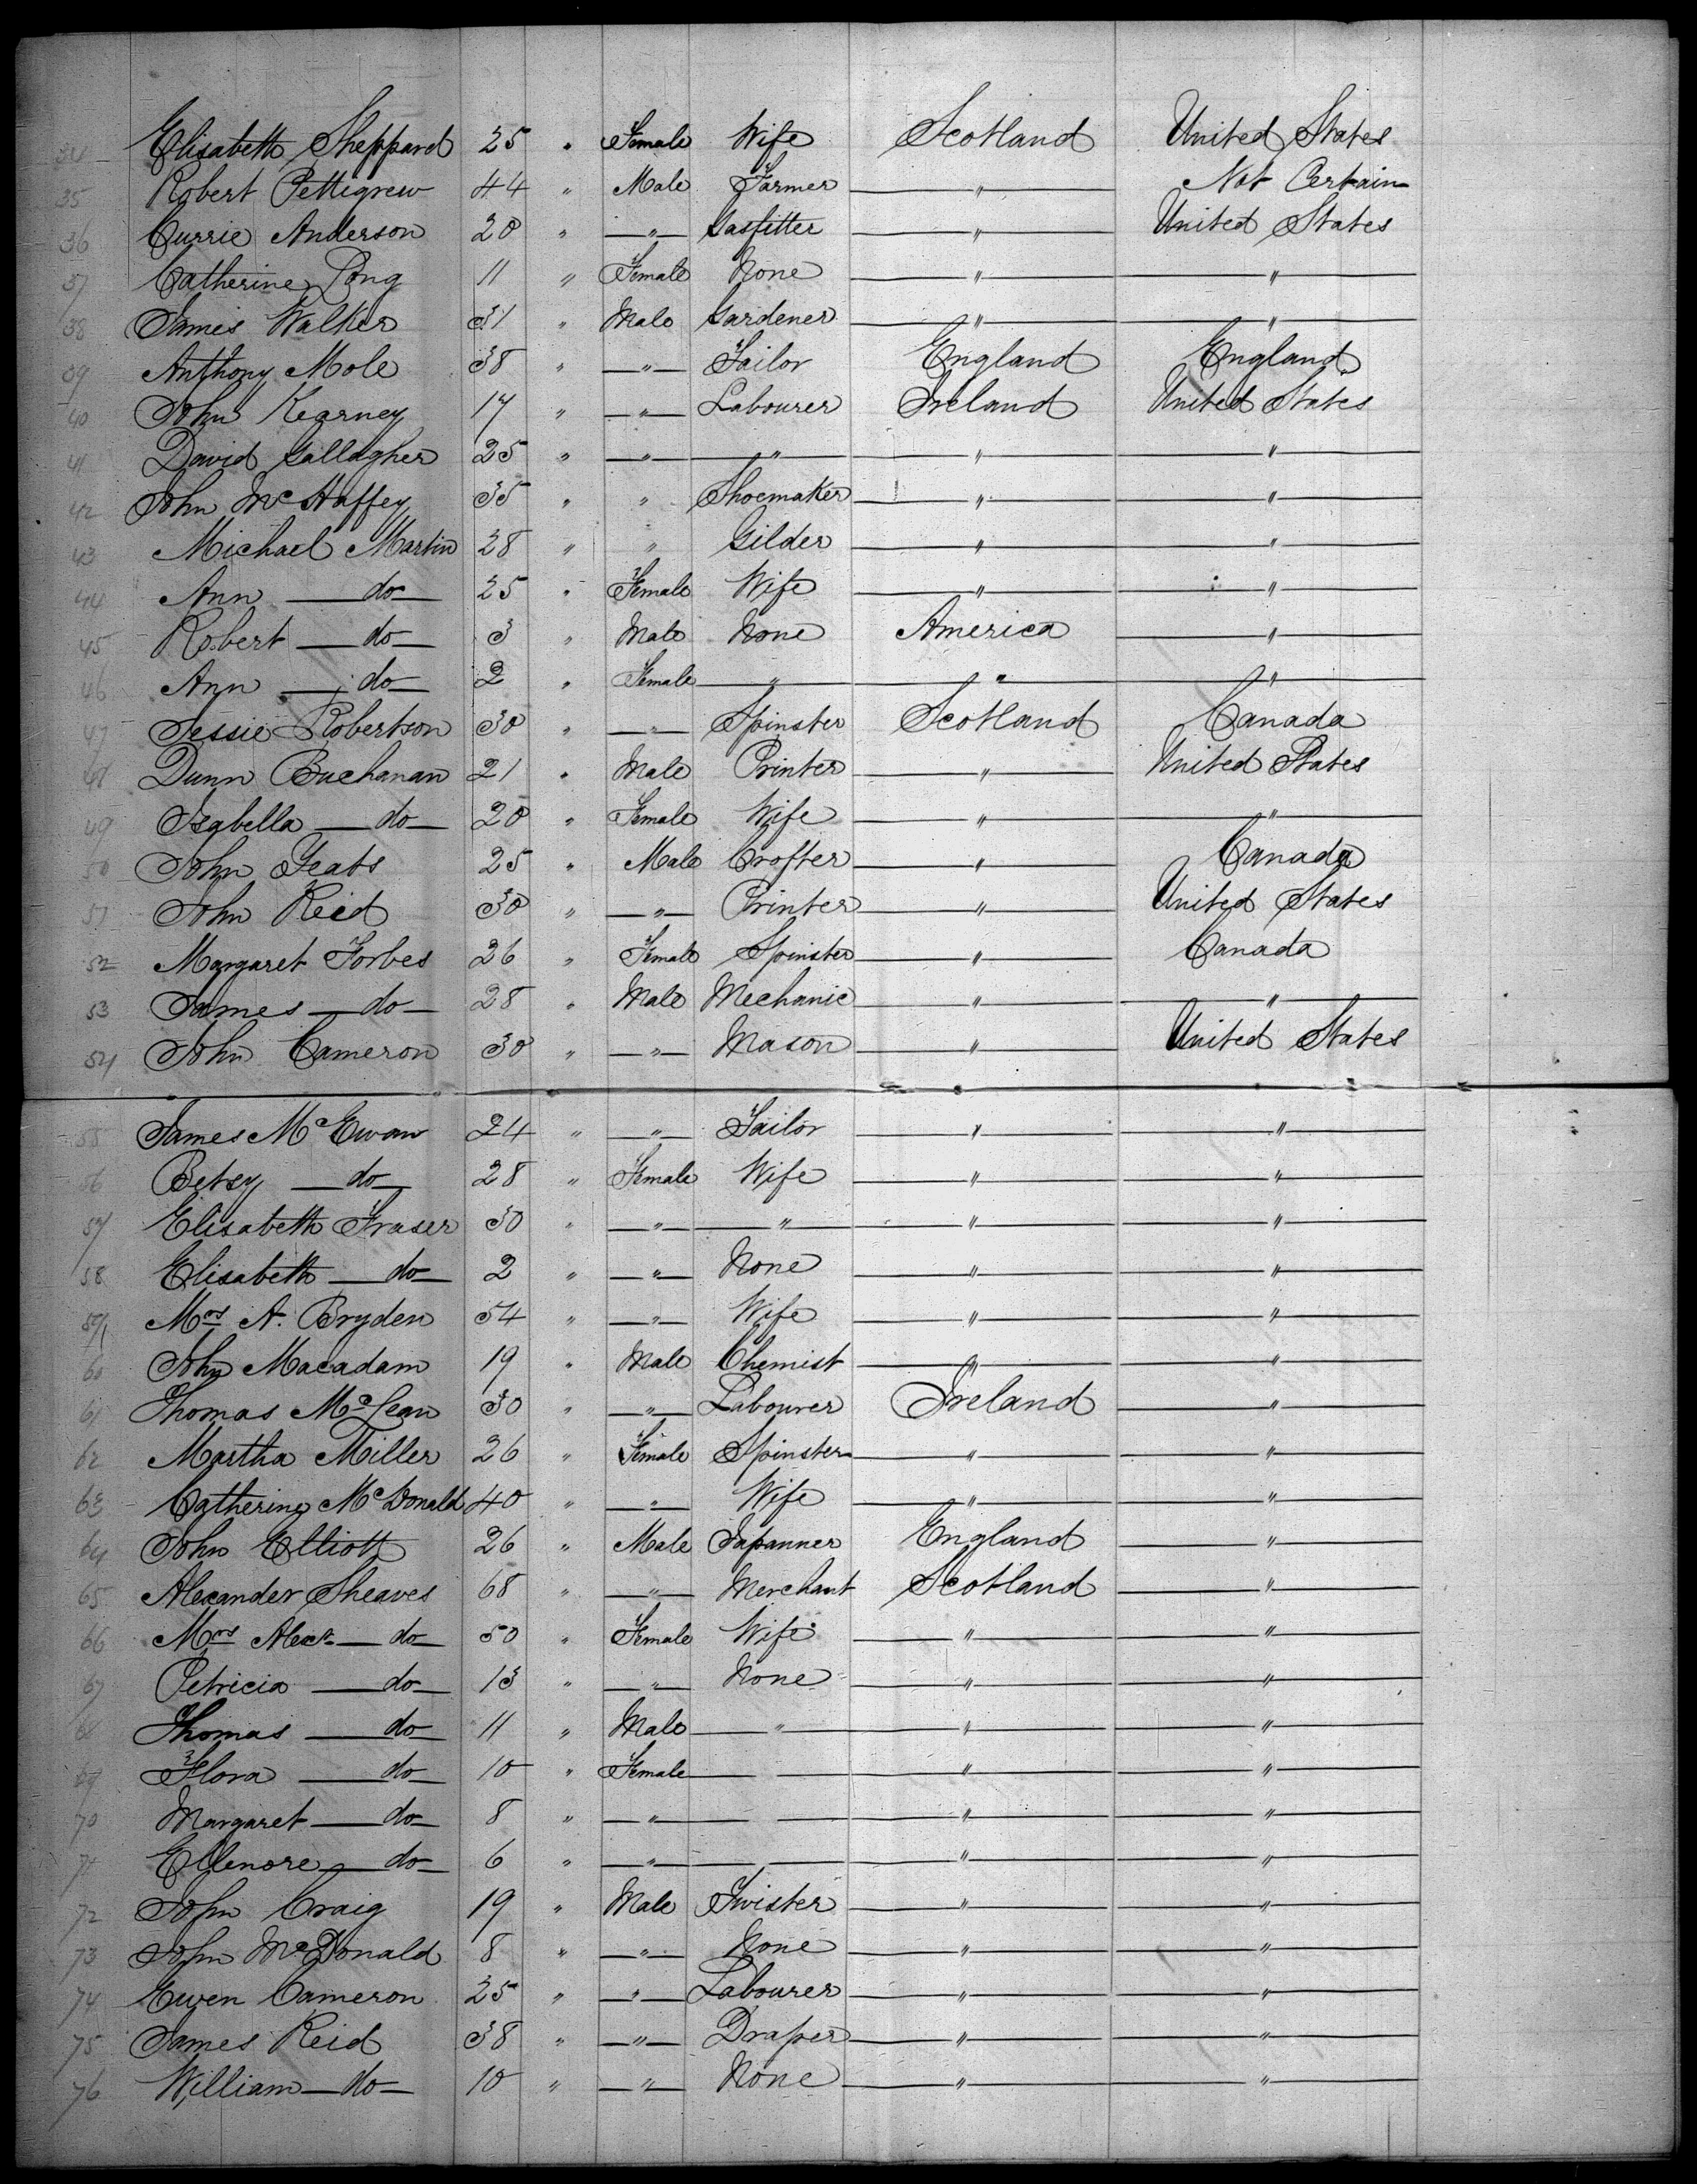 34 Elisabeth Sheppard 25 " Female Wife Scotland United States
35 Robert Pettigrew 44 " Male Farmer " Not Certain
36 Currie Anderson 20 " " Gasfitter " United States
37 Catherine Long 11 " Female None " "
38 James Walker 31 " Male Gardener " "
39 Anthony Mole 38 " " Tailor England England
40 John Kearney 17 " " Labourer Ireland United States
41 David Gallagher 25 " " " " "
42 John McHaffey 35 " " Shoemaker " "
43 Michael Martin 28 " " Gilder " "
44 Ann do 25 " Female Wife " "
45 Robert do 3 " Male None America "
46 Ann do 2 " Female " " "
47 Jessie Robertson 30 " " Spinster Scotland Canada
48 Dunn Buchanan 21 " Male Printer " United States
49 Isabella do 20 " Female Wife " "
50 John Yeats 25 " Male Crofter " Canada
51 John Reid 30 " " Printer " United States
52 Margaret Forbes 26 " Female Spinster " Canada
53 James do 28 " Male Mechanic " "
54 John Cameron 30 " " Mason " United States
55 James McEwan 24 " " Tailor " "
56 Betsy do 28 " Female Wife " "
57 Elisabeth Fraser 30 " " " " "
58 Elisabeth do 2 " " None " "
59 Mrs A. Bryden 54 " " Wife " "
60 John Macadam 19 " Male Chemist " "
61 Thomas McLean 30 " " Labourer Ireland "
62 Martha Miller 26 " Female Spinster " "
63 Catherine McDonald 40 " " Wife " "
64 John Elliott 26 " Male Japanner England "
65 Alexander Sheaves 68 " " Merchant Scotland "
66 Mrs Alexr do 50 " Female Wife " "
67 Petricia do 13 " " None " "
68 Thomas do 11 " Male " " "
69 Flora do 10 " Female " "
70 Margaret do 8 " " " "
71 Ellenore do 6 " " " "
72 John Craig 19 " Male Twister " "
73 John McDonald 8 " " None " "
74 Ewen Cameron 25 " " Labourer " "
75 James Reid 38 " " Draper " "
76 William do 10 " " None " "